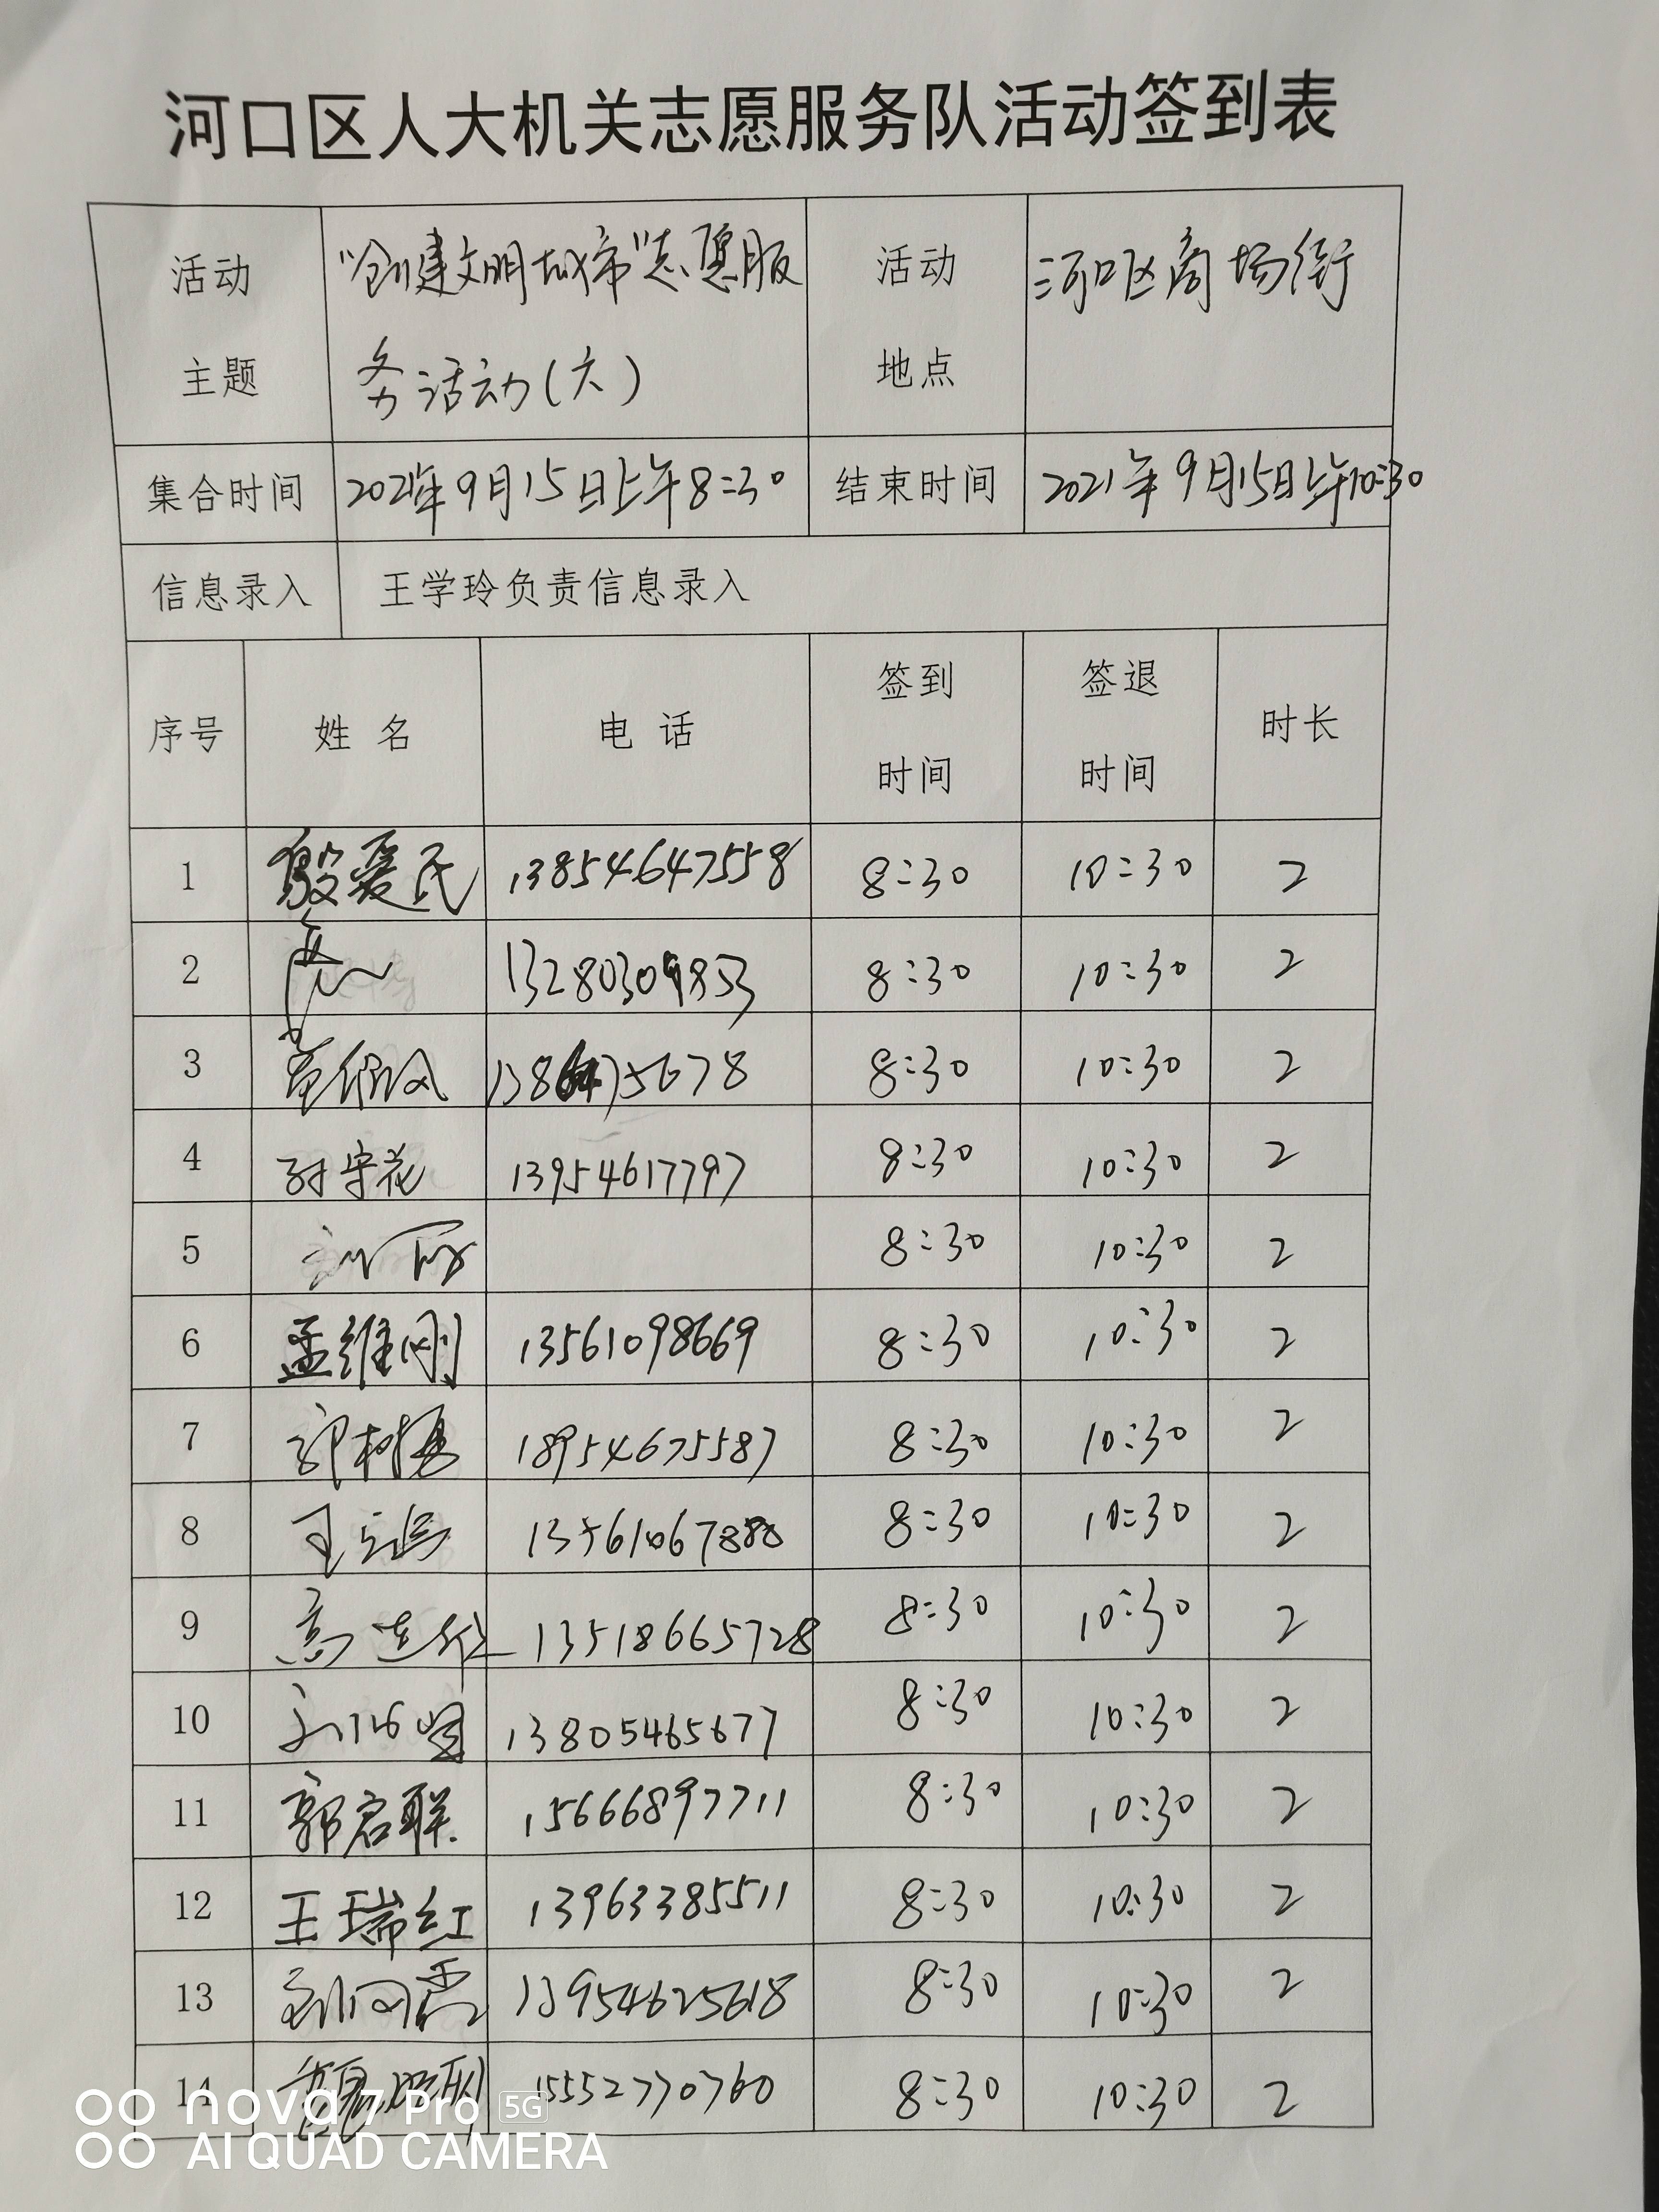 河口区人大机关志愿服务队活动签到表
活动主题 “创建文明城市”志愿服务活动(六) 活动地点 河口区商场街
集合时间 2021年9月15日上午8:30 结束时间 2021年9月15日上午10:30
信息录入 王学玲负责信息录入
序号 姓名 电话 签到时间 签退时间 时长
1 殷爱民 13854647558 8:30 10:30 2
2 13280309853 8:30 10:30 2
3 8:30 10:30 2
4 孙守花 13954617797 8:30 10:30 2
5 8:30 10:30 2
6 孟维刚 13561098669 8:30 10:30 2
7 18954675587 8:30 10:30 2
8 8:30 10:30 2
9 13518665728 8:30 10:30 2
10 13805465677 8:30 10:30 2
11 郭启联 15666897711 8:30 10:30 2
12 王瑞红 13963385511 8:30 10:30 2
13 13954625618 8:30 10:30 2
14 15552770760 8:30 10:30 2
nova 7 Pro 5G
AI QUAD CAMERA